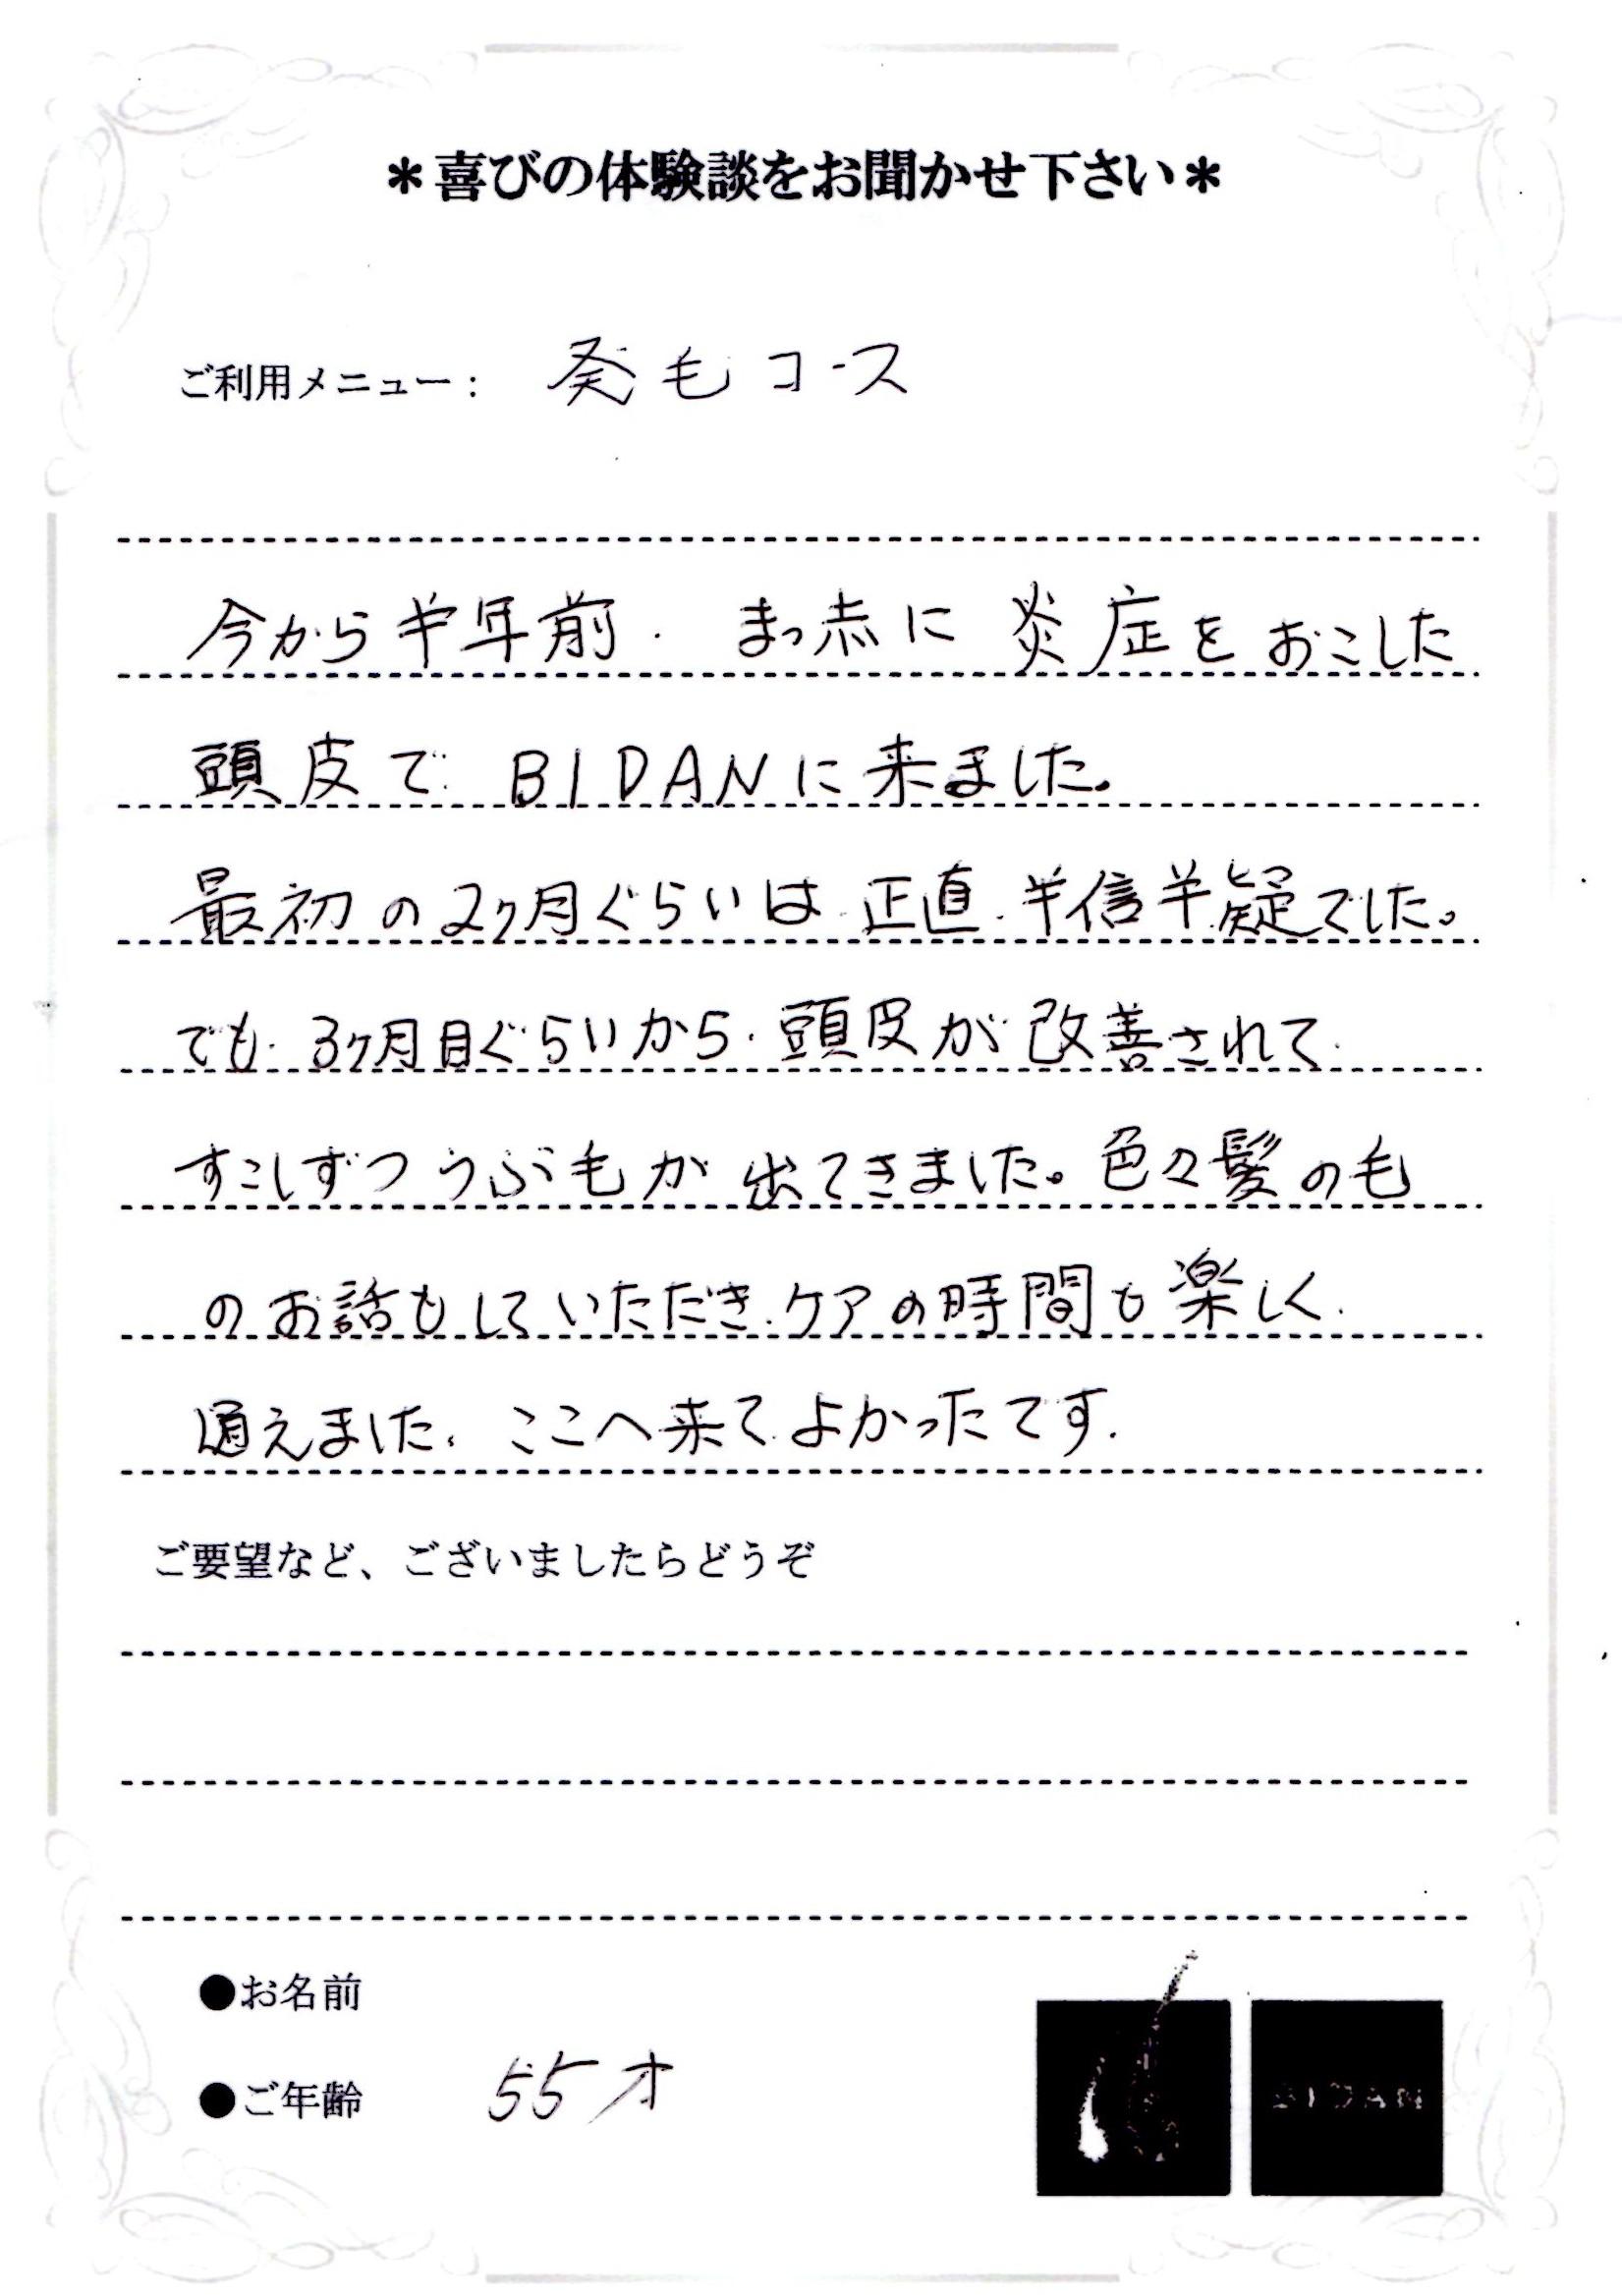 ＊喜びの体験談をお聞かせ下さい＊
ご利用メニュー： 発毛コース
今から半年前. まっ赤に炎症をおこした
頭皮で BIDANに来ました。
最初の2ヶ月ぐらいは正直.半信半疑でした。
でも. 3ヶ月目ぐらいから. 頭皮が改善されて.
すこしずつうぶ毛が出てきました。色々髪の毛
のお話もしていただき.ケアの時間も楽しく.
通えました。ここへ来てよかったてす.
ご要望など、ございましたらどうぞ
●お名前
●ご年齢 55才
BIDAN